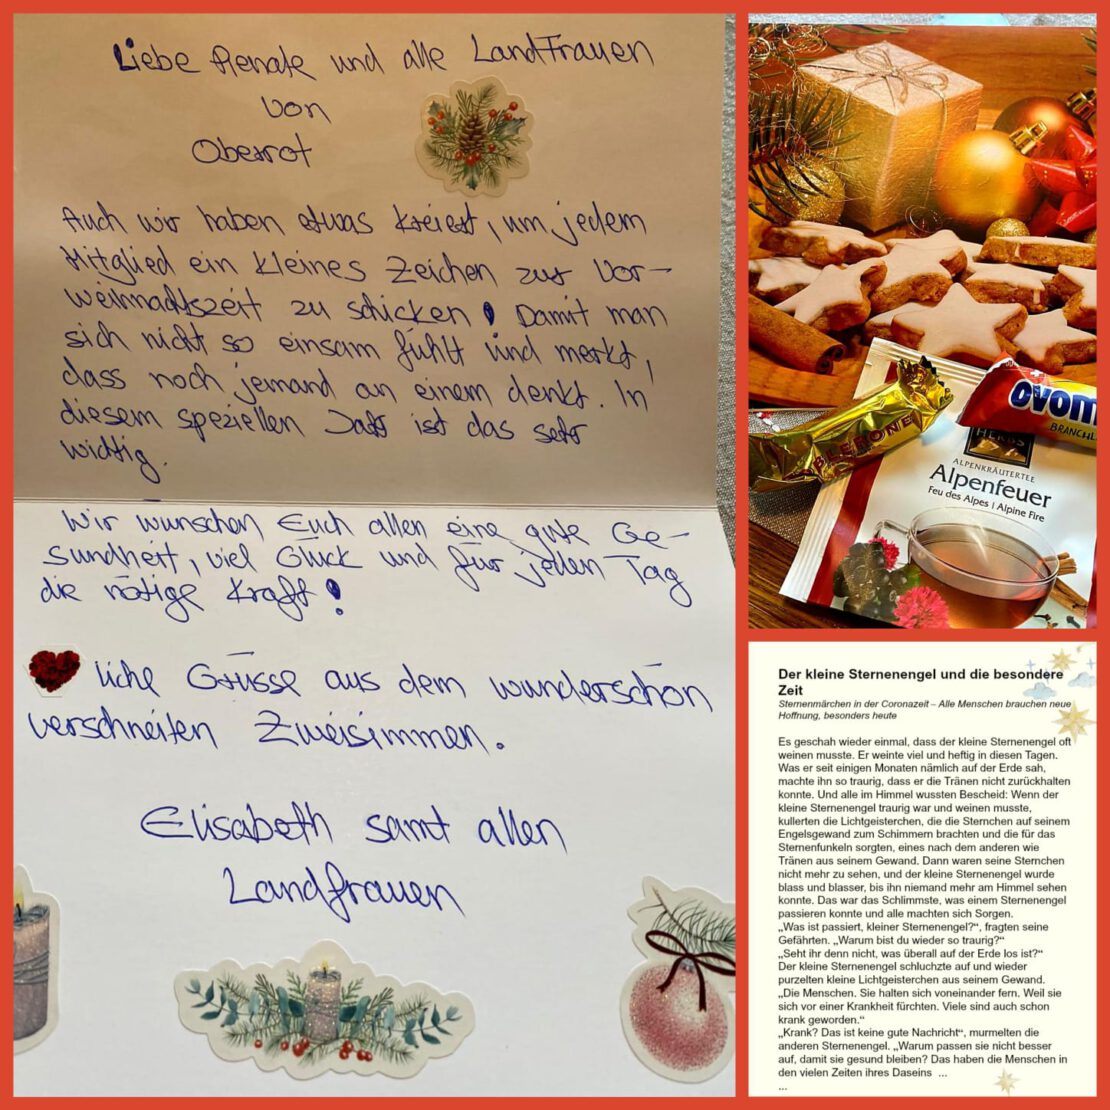 Liebe Renate und alle LandFrauen
von
Oberrot
Auch wir haben etwas kreiert, um jedem
Mitglied ein kleines Zeichen zur Vor-
weihnachtszeit zu schicken! Damit man
sich nicht so einsam fühlt und merkt,
dass noch jemand an einem denkt. In
diesem speziellen Jahr ist das sehr
wichtig.
Wir wünschen Euch allen eine gute Ge-
sundheit, viel Glück und für jeden Tag
die nötige Kraft!
liche Grüsse aus dem wunderschön
verschneiten Zweisimmen.
Elisabeth samt allen
Landfrauen
OVOM
BRANCHL
HERBS
ALPENKRÄUTERTEE
Alpenfeuer
Feu des Alpes | Alpine Fire
Der kleine Sternenengel und die besondere
Zeit
Sternenmärchen in der Coronazeit – Alle Menschen brauchen neue
Hoffnung, besonders heute
Es geschah wieder einmal, dass der kleine Sternenengel oft
weinen musste. Er weinte viel und heftig in diesen Tagen.
Was er seit einigen Monaten nämlich auf der Erde sah,
machte ihn so traurig, dass er die Tränen nicht zurückhalten
konnte. Und alle im Himmel wussten Bescheid: Wenn der
kleine Sternenengel traurig war und weinen musste,
kullerten die Lichtgeisterchen, die die Sternchen auf seinem
Engelsgewand zum Schimmern brachten und die für das
Sternenfunkeln sorgten, eines nach dem anderen wie
Tränen aus seinem Gewand. Dann waren seine Sternchen
nicht mehr zu sehen, und der kleine Sternenengel wurde
blass und blasser, bis ihn niemand mehr am Himmel sehen
konnte. Das war das Schlimmste, was einem Sternenengel
passieren konnte und alle machten sich Sorgen.
„Was ist passiert, kleiner Sternenengel?“, fragten seine
Gefährten. „Warum bist du wieder so traurig?“
„Seht ihr denn nicht, was überall auf der Erde los ist?“
Der kleine Sternenengel schluchzte auf und wieder
purzelten kleine Lichtgeisterchen aus seinem Gewand.
„Die Menschen. Sie halten sich voneinander fern. Weil sie
sich vor einer Krankheit fürchten. Viele sind auch schon
krank geworden.“
„Krank? Das ist keine gute Nachricht“, murmelten die
anderen Sternenengel. „Warum passen sie nicht besser
auf, damit sie gesund bleiben? Das haben die Menschen in
den vielen Zeiten ihres Daseins ...
...